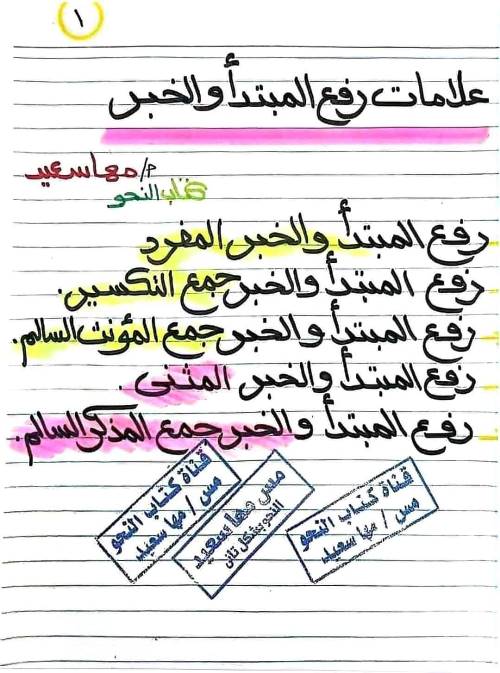 ١
علامات رفع المبتدأ والخبر
م/ مها سعيد
كتاب النحو
رفع المبتدأ والخبر المفرد
رفع المبتدأ والخبر جمع التكسير.
رفع المبتدأ والخبر جمع المؤنث السالم.
رفع المبتدأ والخبر المثنى.
رفع المبتدأ والخبر جمع المذكر السالم.
قناة كتاب النحو
مس / مها سعيد
مس مها سعيد
النحو بشكل تاني
قناة كتاب النحو
مس / مها سعيد